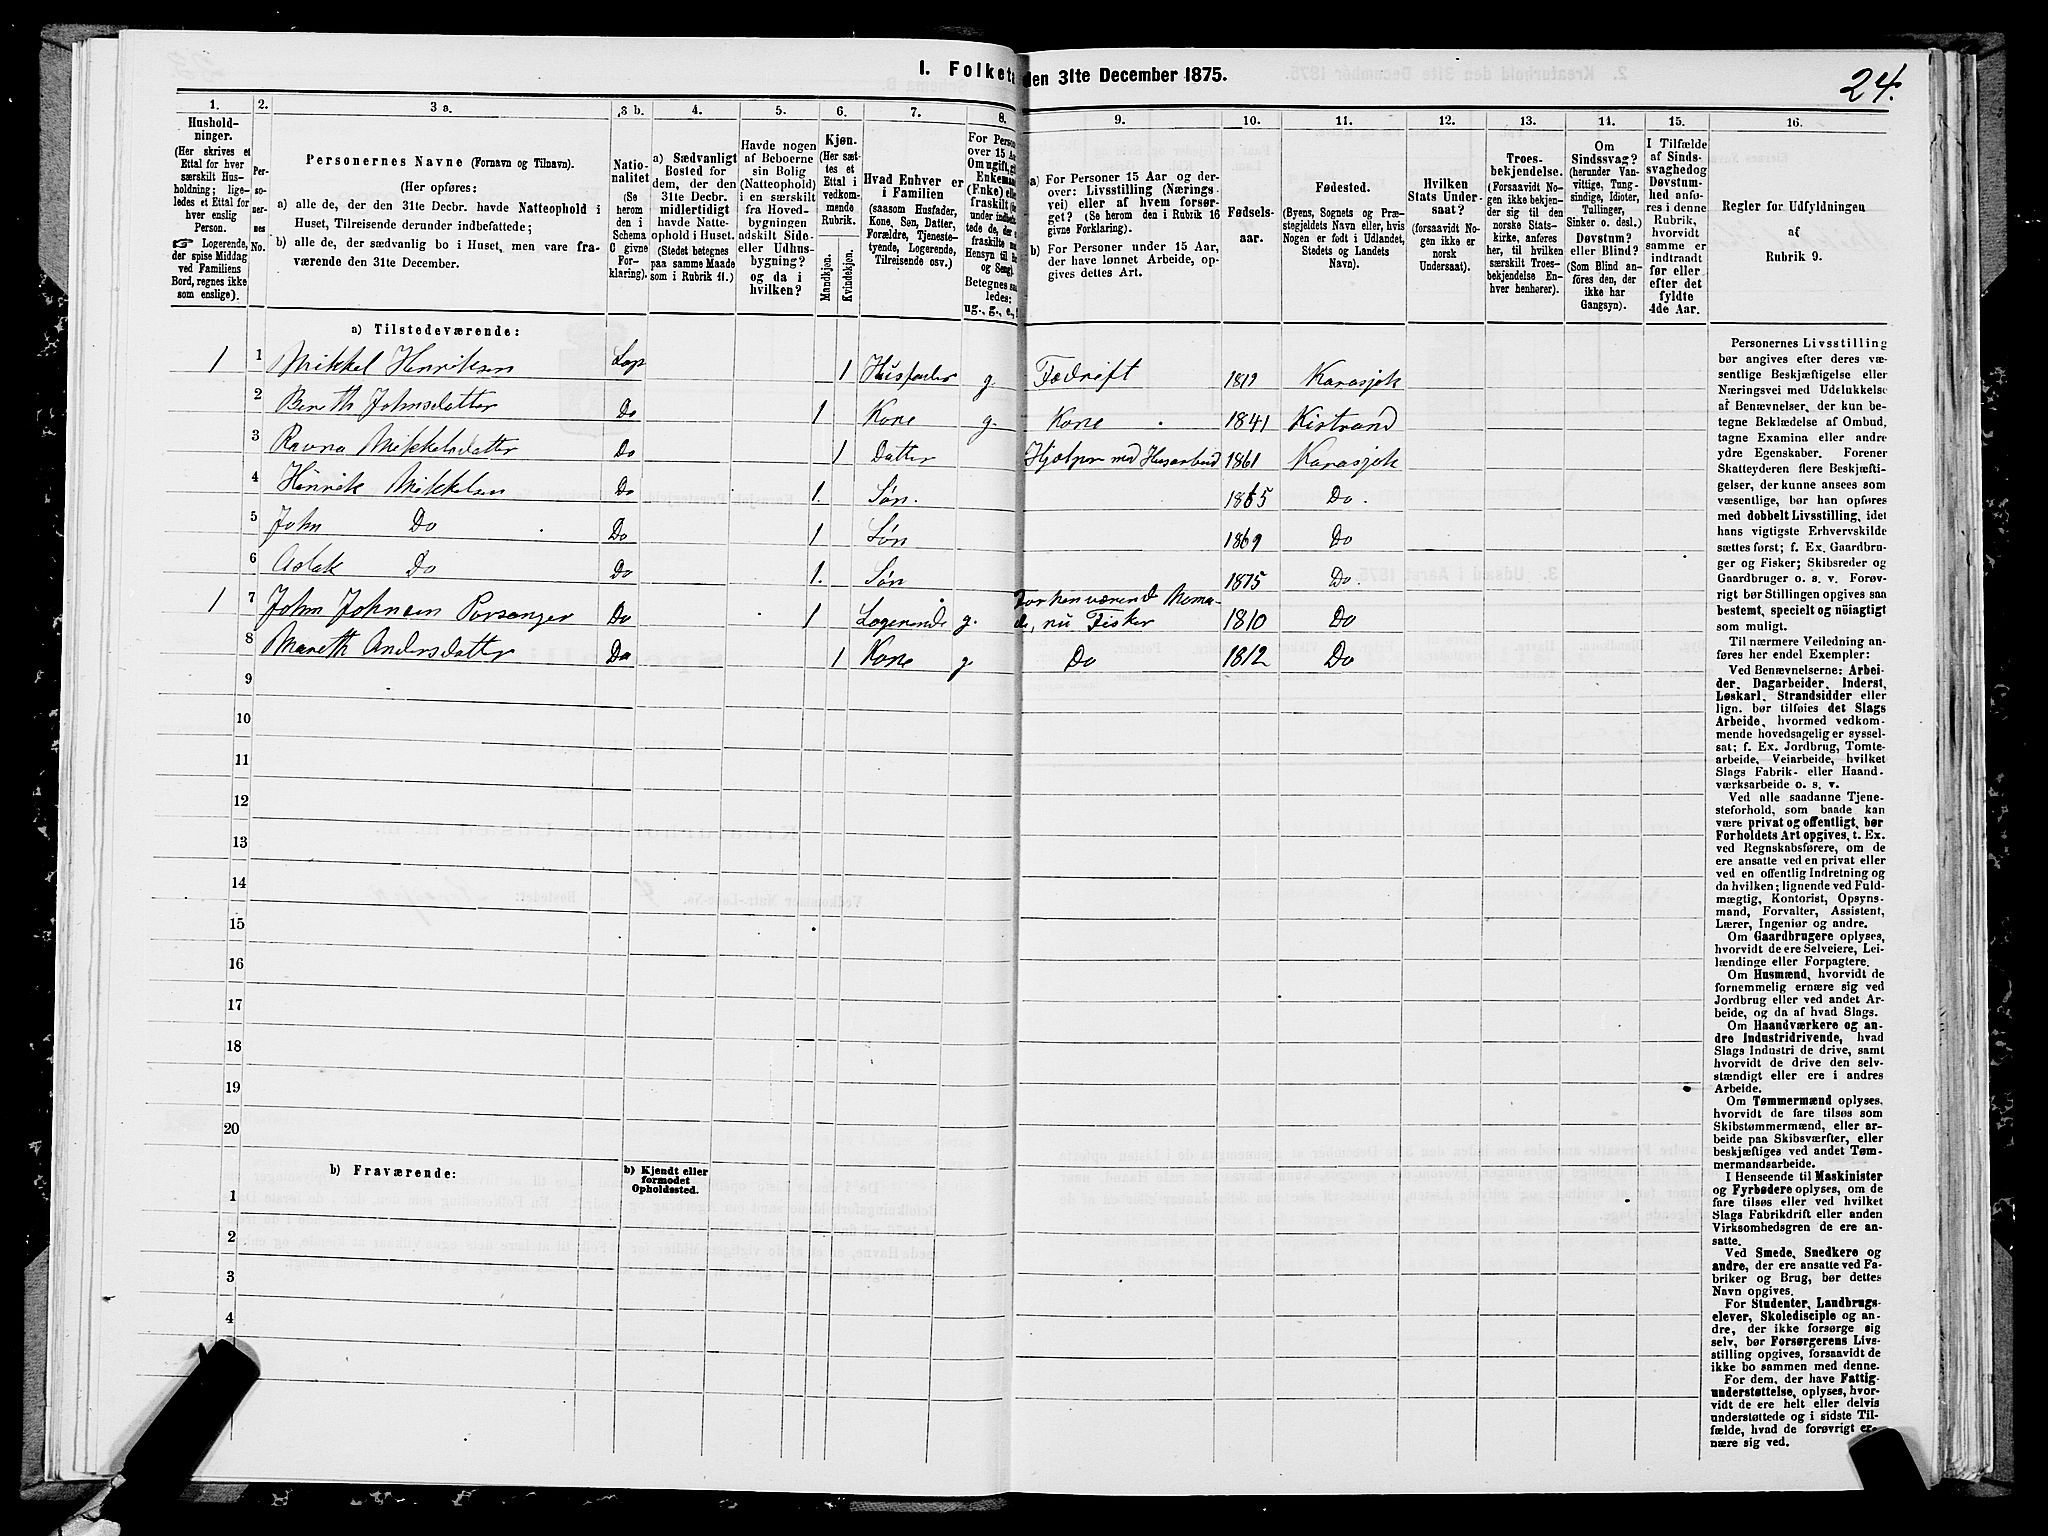 I. Folket
den 31te December 1875.
24.
1.
2.
3 a.
3 b.
4.
5.
6.
7.
8.
9.
10.
11.
12.
13.
14.
15.
16.
Hushold-
ninger.
(Her skrives et
Ettal for hver
særskilt Hus-
holdning; lige-
ledes et Ettal for
hver enslig
Person.
☞ Logerende,
der spise Middag
ved Familiens
Bord, regnes ikke
som enslige).
Per-
so-
ner-
nes
No.
Personernes Navne (Fornavn og Tilnavn).
(Her opføres:
a) alle de, der den 31te Decbr. havde Natteophold i
Huset, Tilreisende derunder indbefattede;
b) alle de, der sædvanlig bo i Huset, men vare fra-
værende den 31te December.
Natio-
nalitet
(Se
herom
den i
Schema
C givne
For-
klaring).
a) Sædvanligt
Bosted for
dem, der den
31te Decbr.
midlertidigt
havde Natte-
ophold i Huset.
(Stedet betegnes
paa samme Maade
som i Rubrik 11.)
Havde nogen
af Beboerne
sin Bolig
(Natteophold)
i en særskilt
fra Hoved-
bygningen
adskilt Side-
eller Udhus-
bygning?
og da i
hvilken?
Kjøn.
(Her sæt-
tes et
Ettal i
vedkom-
mende
Rubrik.
Mandkjøn.
Kvindekjøn.
Hvad Enhver er
i Familien
(saasom Husfader,
Kone, Søn, Datter,
Forældre, Tjeneste-
tyende, Logerende,
Tilreisende osv.)
For Person
over 15 Aa
Om ugift, g
Enkema
(Enke) elle
fraskilt (
under indbe
tede de, de
fraskilte
Hensyn til B
og Seng)
Betegnes sa
ledes:
ug., g., e.,
a) For Personer 15 Aar og der-
over: Livsstilling (Nærings-
vei) eller af hvem forsør-
get? (Se herom den i Rubrik 16
givne Forklaring).
b) For Personer under 15 Aar,
der have lønnet Arbeide, op-
gives dettes Art.
Fødsels-
aar.
Fødested.
(Byens, Sognets og Præ-
stegjeldets Navn eller, hvis
Nogen er født i Udlandet,
Stedets og Landets
Navn).
Hvilken
Stats Under-
saat?
(forsaavidt No-
gen ikke er
norsk
Undersaat).
Troes-
bekjendelse.
(Forsaavidt No-
gen ikke bekjen-
der sig til den
norske Stats-
kirke, anføres
her, til hvilken
særskilt Troes-
bekjendelse En-
hver henhører).
Om
Sindssvag?
(herunder Van-
vittige, Tung-
sindige, Idioter,
Tullinger,
Sinker o. desl.)
Døvstum?
eller Blind?
(Som Blind an-
føres den, der
ikke har
Gangsyn).
I Tilfælde
af Sinds-
svaghed og
Døvstum-
hed anfø-
res i denne
Rubrik,
hvorvidt
samme er
indtraadt
før eller
efter det
fyldte
4de Aar.
Regler for Udfyldningen
af
Rubrik 9.
a) Tilstedeværende:
1 1 Mikkel Henriksen Lap 1 Husfader g. Fædrift 1819 Karasjok
2 Bereth Johnsdatter Do 1 Kone g. Kone 1841 Kistrand
3 Ravna Mikkelsdatter Do 1 Datter Hjælper med Husarbeid 1861 Karasjok
4 Henrik Mikkelsen Do 1. Søn. 1865 Do.
5 John Do Do 1 Søn 1869 Do
6 Aslak Do Do 1. Søn 1875 Do.
1 7 John Johnsen Porsanger Do 1 Logerende g. Forhenværende Noma-
de, nu Fisker 1810 Do
8 Mareth Andersdatter Do 1 Kone g. Do 1812 Do
9
10
11
12
13
14
15
16
17
18
19
20
b) Fraværende:
b) Kjendt eller
formodet
Opholdssted.
1
2
3
4
Personernes Livsstilling
bør angives efter deres væ-
sentlige Beskjæftigelse eller
Næringsvei med Udelukkelse
af Benævnelser, der kun be-
tegne Beklædelse af Ombud,
tagne Examina eller andre
ydre Egenskaber. Forener
Skatteyderen flere Beskjæfti-
gelser, der kunne ansees som
væsentlige, bør han opføres
med dobbelt Livsstilling, idet
hans vigtigste Erhvervskilde
sættes først; f. Ex. Gaardbru-
ger og Fisker; Skibsreder og
Gaardbruger o. s. v. Forøv-
rigt bør Stillingen opgives saa
bestemt, specielt og nöiagtigt
som muligt.
Til nærmere Veiledning an-
føres her endel Exempler:
Ved Benævnelserne: Arbei-
der, Dagarbeider, Inderst,
Løskarl, Strandsidder eller
lign. bør tilføies det Slags
Arbeide, hvormed vedkom-
mende hovedsagelig er syssel-
sat; f. Ex. Jordbrug, Tomte-
arbeide, Veiarbeide, hvilket
Slags Fabrik- eller Haand-
værksarbeide o. s. v.
Ved alle saadanne Tjene-
steforhold, som baade kan
være privat og offentligt, bør
Forholdets Art opgives, t. Ex.
ved Regnskabsførere, om de
ere ansatte ved en privat eller
ved en offentlig Indretning og
da hvilken; lignende ved Fuld-
mægtig, Kontorist, Opsyns-
mand, Forvalter, Assistent,
Lærer, Ingeniør og andre.
Om Gaardbrugere oplyses,
hvorvidt de ere Selveiere, Lei-
lændinge eller Forpagtere.
Om Husmænd, hvorvidt de
fornemmelig ernære sig ved
Jordbrug eller ved andet Ar-
beide, og da af hvad Slags.
Om Haandværkere og an-
dre Industridrivende, hvad
Slags Industri de drive, samt
hvorvidt de drive den selv-
stændigt eller ere i andres
Arbeide.
Om Tømmermænd oplyses,
hvorvidt de fare tilsøs som
Skibstømmermænd, eller ar-
beide paa Skibsværfter, eller
beskjæftiges ved andet Tøm-
mermandsarbeide.
I Henseende til Maskinister
og Fyrbødere oplyses, om de
fare tilsøs eller ved hvilket
Slags Fabrikdrift eller anden
Virksomhedsgren de ere an-
satte.
Ved Smede, Snedkere og
andre, der ere ansatte ved Fa-
briker og Brug, bør dettes
Navn opgives.
For Studenter, Landbrugs-
elever, Skoledisciple og an-
dre, der ikke forsørge sig
selv, bør Forsørgerens Livs-
stilling opgives, forsaavidt de
ikke bo sammen med denne.
For dem, der have Fattig-
understøttelse, oplyses, hvor-
vidt de ere helt eller delvis
understøttede og i sidste Til-
fælde, hvad de forøvrigt er-
nære sig ved.